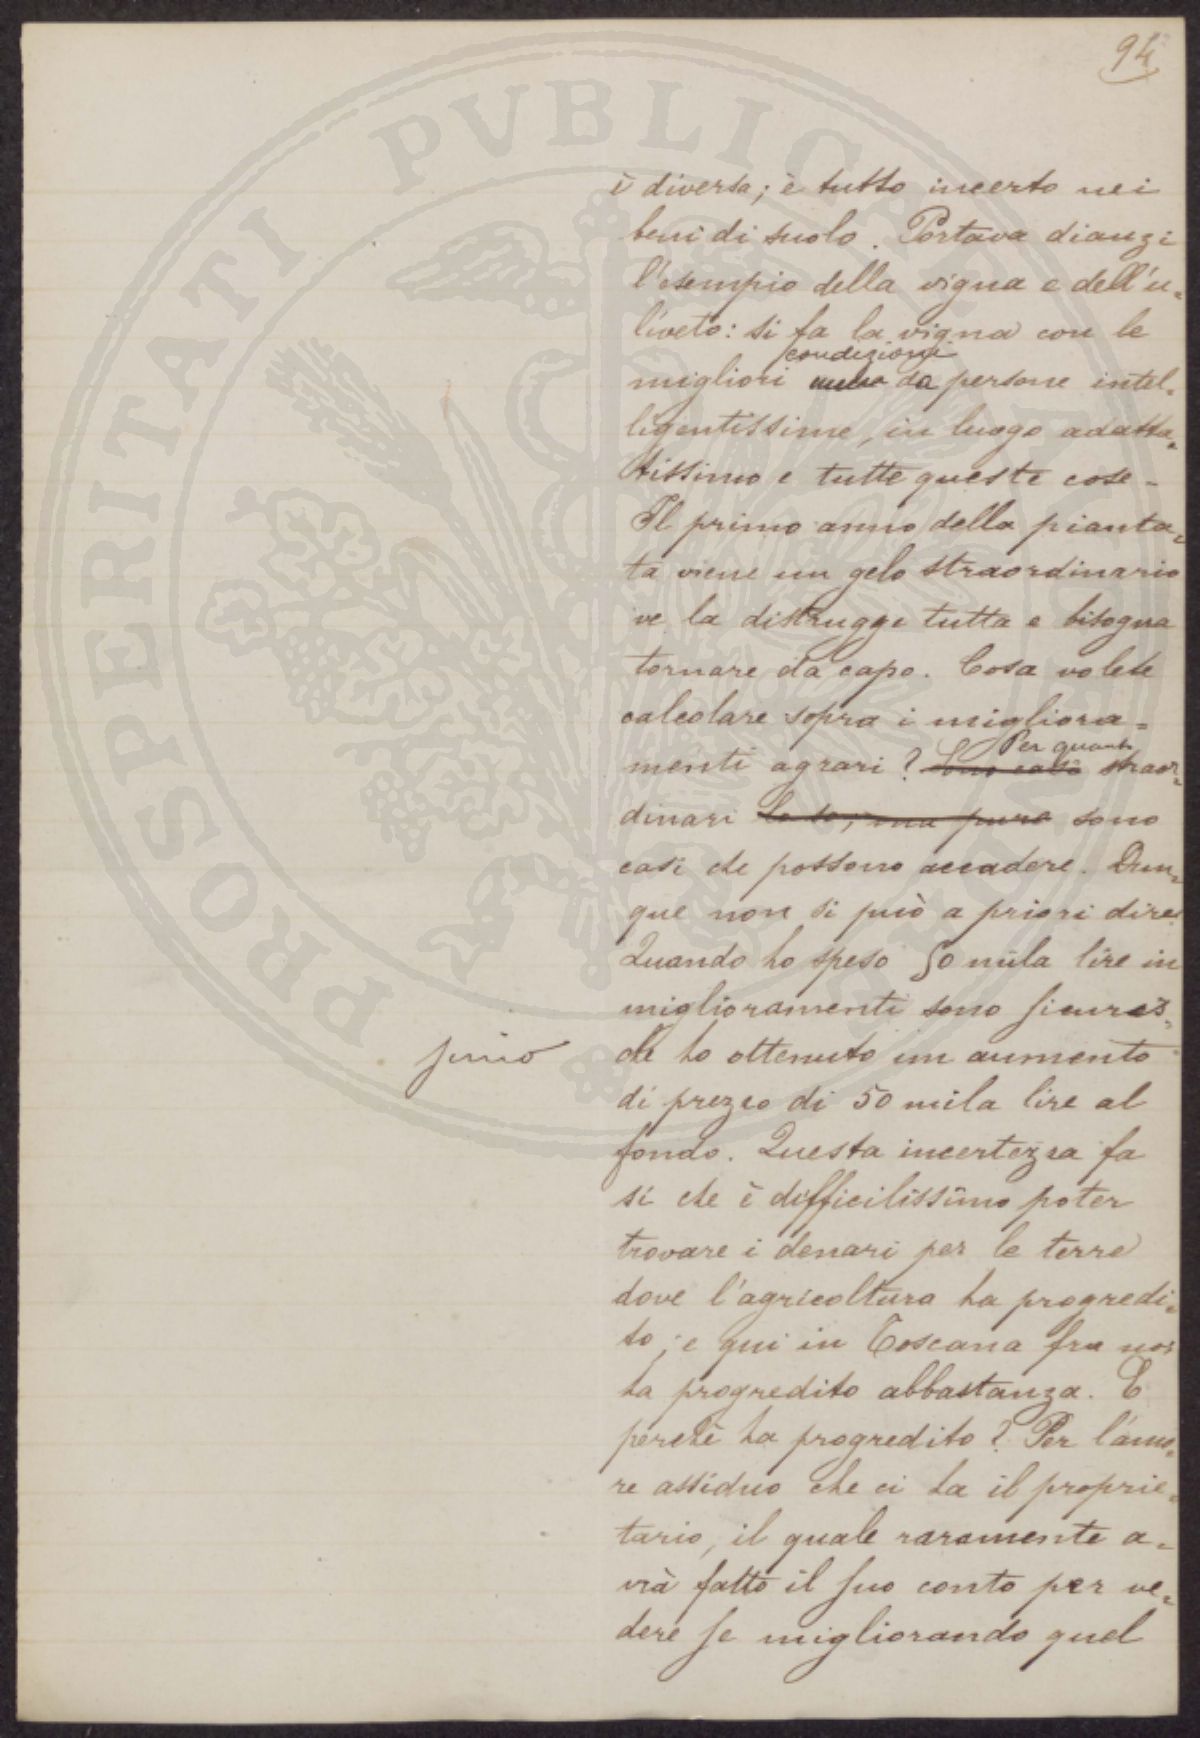 94
è diversa; è tutto incerto nei
beni di suolo. Portava dianzi
l'esempio della vigna e dell'u=
liveto: si fa la vigna con le
condizioni
migliori da persone intel=
ligentissime, in luogo adatta=
tissimo e tutte queste cose -
Il primo anno della pianta=
ta viene un gelo straordinario
ve la distrugge tutta e bisogna
tornare da capo. Cosa volete
calcolare sopra i migliora=
Per quanto
menti agrari? Sono casi straor=
dinari lo so, ma pure sono
casi che possono accadere. Dun=
que non si può a priori dire:
Quando ho speso 50 mila lire in
miglioramenti sono sicuro
che ho ottenuto un aumento
di prezzo di 50 mila lire al
fondo. Questa incertezza fa
sì che è difficilissimo poter
trovare i denari per le terre
dove l'agricoltura ha progredi=
to; e qui in Toscana fra noi
ha progredito abbastanza. E
perchè ha progredito? Per l'amo=
re assiduo che ci ha il proprie=
tario, il quale raramente a=
vrà fatto il suo conto per ve=
dere se migliorando quel
PROSPERITATI PVBLICAE